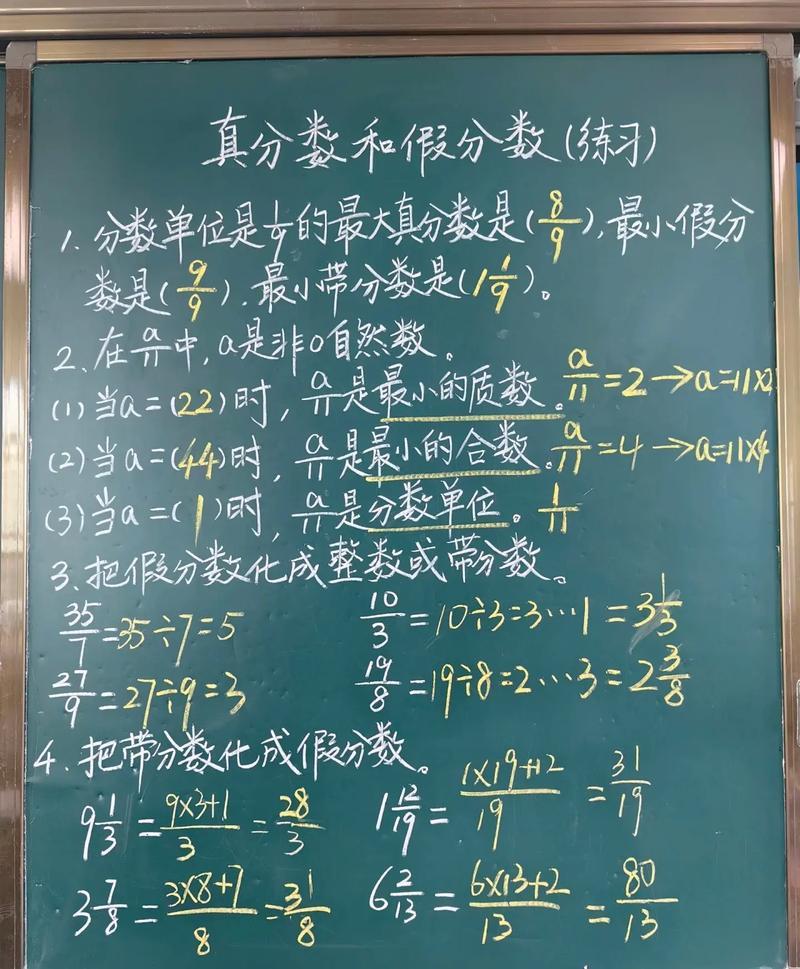 真分数和假分数(练习)
1. 分数单位是1/9的最大真分数是(8/9),最小假分
数是(9/9),最小带分数是(1 1/9)。
2. 在a/11中,a是非0自然数。
(1)当a=(22)时,a/11是最小的质数。a/11=2→a=11×2
(2)当a=(44)时,a/11是最小的合数。a/11=4→a=11×4
(3)当a=(1)时,a/11是分数单位。1/11
3. 把假分数化成整数或带分数。
35/7=35÷7=5 10/3=10÷3=3…1=3 1/3
27/9=27÷9=3 19/8=19÷8=2…3=2 3/8
4. 把带分数化成假分数。
9 1/3=(9×3+1)/3=28/3 1 12/19=(1×19+12)/19=31/19
3 7/8=(3×8+7)/8=31/8 6 2/13=(6×13+2)/13=80/13